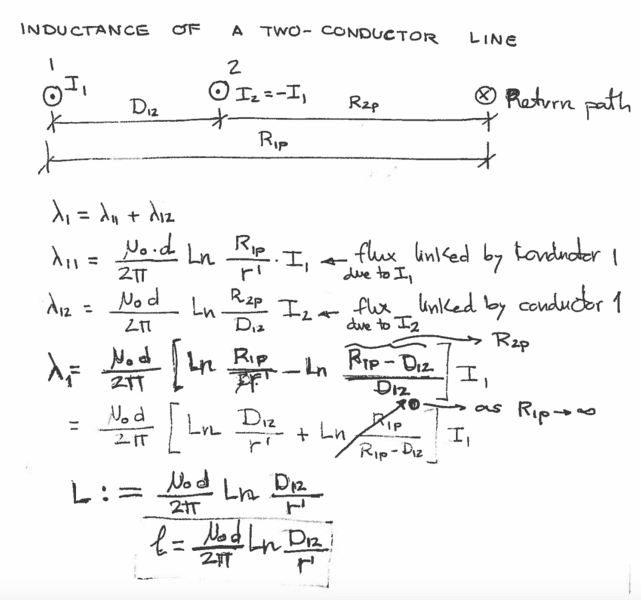 INDUCTANCE OF A TWO-CONDUCTOR LINE
1 2
I₁ I₂ = -I₁ Return path
D₁₂ R₂ₚ
R₁ₚ
λ₁ = λ₁₁ + λ₁₂
λ₁₁ = μ₀·d/2π Ln R₁ₚ/r' · I₁ ← flux linked by conductor 1
due to I₁
λ₁₂ = μ₀d/2π Ln R₂ₚ/D₁₂ I₂ ← flux linked by conductor 1
due to I₂
λ₁ = μ₀d/2π [Ln R₁ₚ/r' - Ln (R₁ₚ - D₁₂)/D₁₂] I₁ → R₂ₚ
= μ₀d/2π [Ln D₁₂/r' + Ln R₁ₚ/(R₁ₚ - D₁₂)] I₁ → 0 → as R₁ₚ → ∞
L := μ₀d/2π Ln D₁₂/r'
ℓ = μ₀d/2π Ln D₁₂/r'